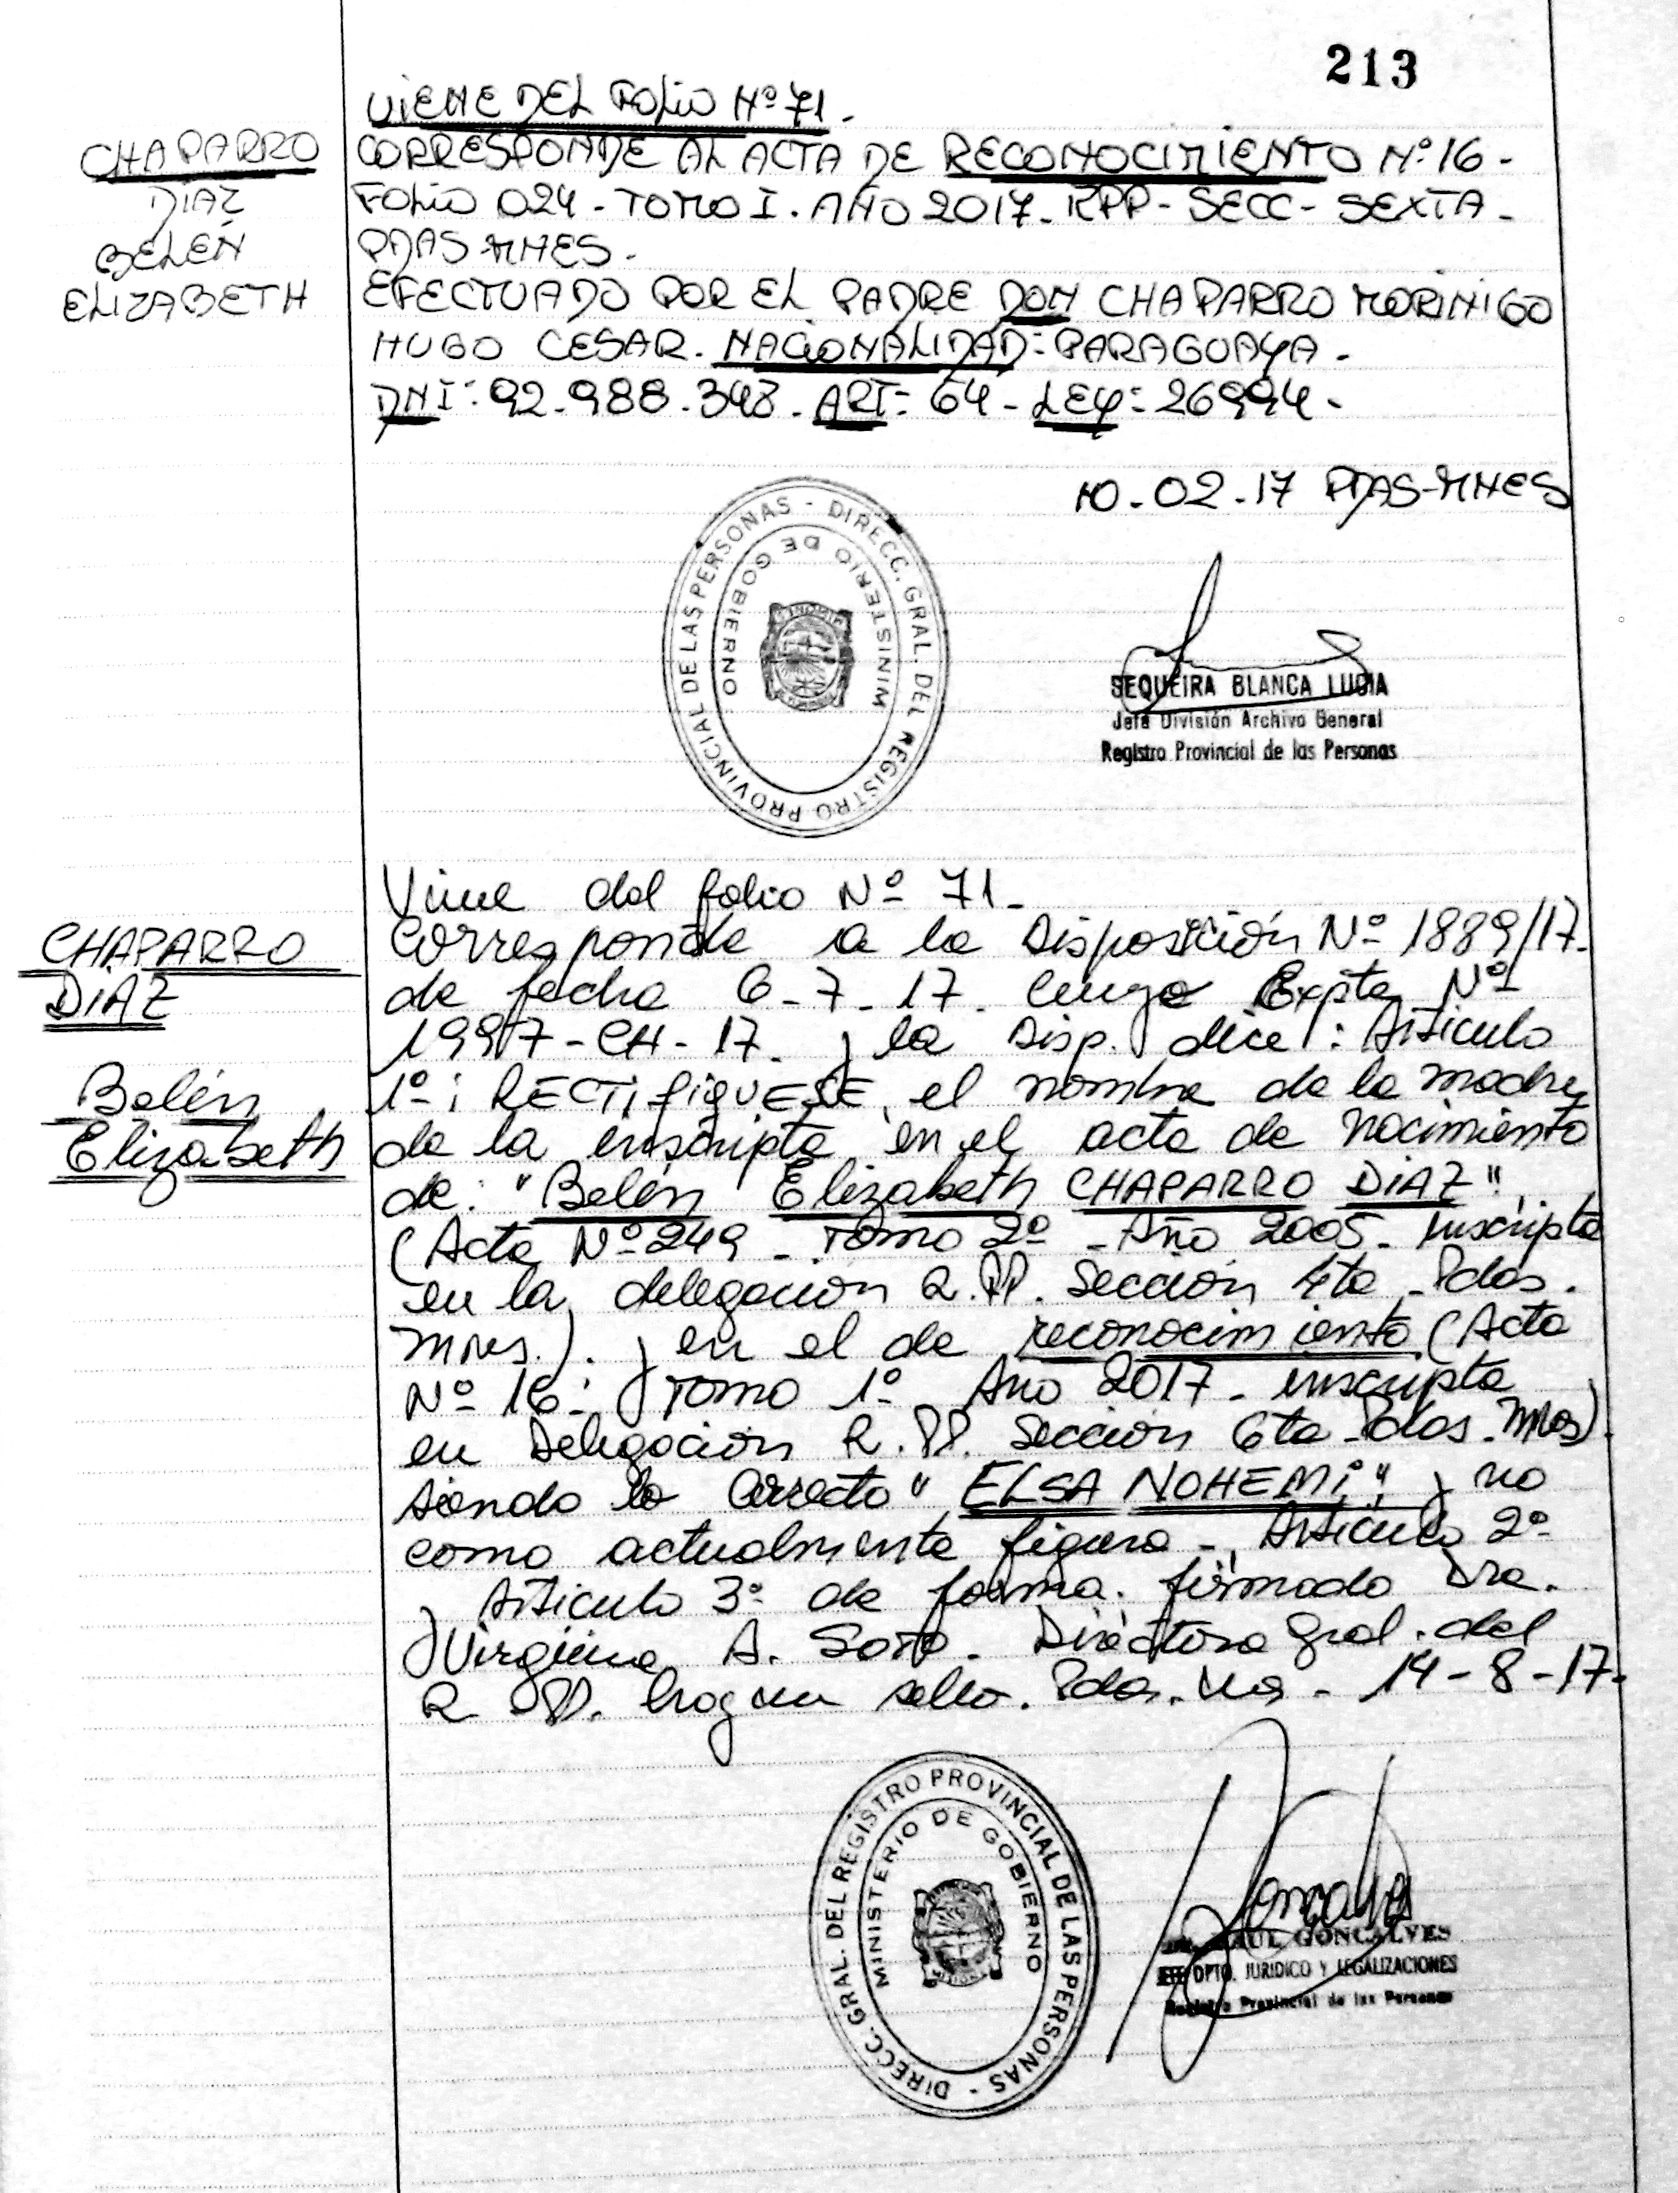 213
VIENE DEL FOLIO Nº 71.
CHAPARRO
DIAZ
BELEN
ELIZABETH
CORRESPONDE AL ACTA DE RECONOCIMIENTO Nº 16-
FOLIO 024- TOMO I. AÑO 2017. RPP- SECC- SEXTA-
PDAS-MNES.
EFECTUADO POR EL PADRE DON CHAPARRO MORINIGO
HUGO CESAR. NACIONALIDAD: PARAGUAYA.
DNI: 92.988.343. ART: 64- LEY: 26994.
10.02.17 PDAS-MNES
DIRECC. GRAL. DEL REGISTRO PROVINCIAL DE LAS PERSONAS -
MINISTERIO DE GOBIERNO
SEQUEIRA BLANCA LUCIA
Jefa División Archivo General
Registro Provincial de las Personas
CHAPARRO
DIAZ
Belén
Elizabeth
Viene del folio Nº 71-
Corresponde a la Disposición Nº 1889/17-
de fecha 6-7-17. Cuyo Expte Nº
1997-CH-17. y la Disp. dice: Artículo
1º: RECTIFIQUESE, el nombre de la madre
de la inscripta en el acta de nacimiento
de: "Belén Elizabeth CHAPARRO DIAZ",
(Acta Nº 249 - Tomo 2º - Año 2005. Inscripta
en la delegación R.PP. Sección 4ta - Pdas.
Mnes.). y en el de reconocimiento (Acta
Nº 16: Tomo 1º Año 2017- inscripta
en Delegación R.PP. Sección 6ta Pdas. Mnes)
siendo lo correcto "ELSA NOHEMI", y no
como actualmente figura - Artículo 2º
y Artículo 3º de forma. firmado Dra.
Virginia A. Soto. Directora Gral. del
R.PP. Hay un sello. Pdas. Mnes - 14-8-17.
DIRECC. GRAL. DEL REGISTRO PROVINCIAL DE LAS PERSONAS -
MINISTERIO DE GOBIERNO
RAUL GONCALVES
JEFE DPTO. JURIDICO Y LEGALIZACIONES
Registro Provincial de las Personas